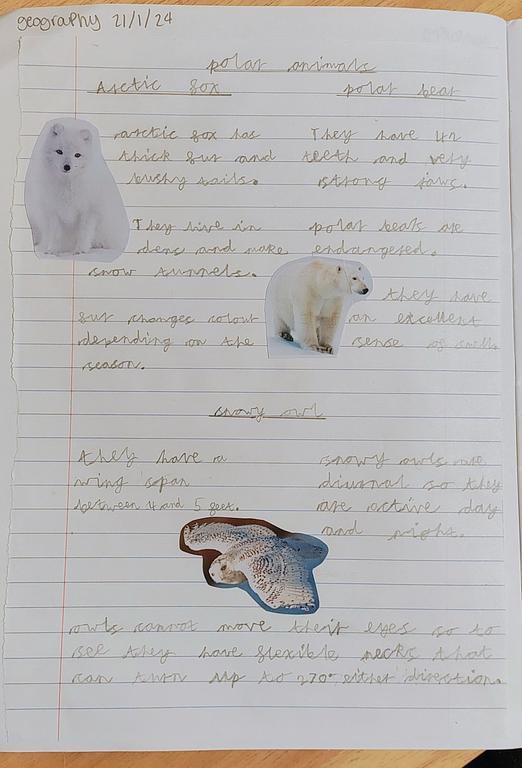 geography 21/1/24
polar animals
Arctic fox
arctic fox has
thick fur and
bushy tails.
They live in
dens and make
snow tunnels.
fur changes colour
depending on the
season.
polar bear
They have 42
teeth and very
strong jaws.
polar bears are
endangered.
they have
an excellent
sense of smell
snowy owl
they have a
wing span
between 4 and 5 feet.
snowy owls are
diurnal so they
are active day
and night.
owls cannot move their eyes so to
see they have flexible necks that
can turn up to 270° either direction.